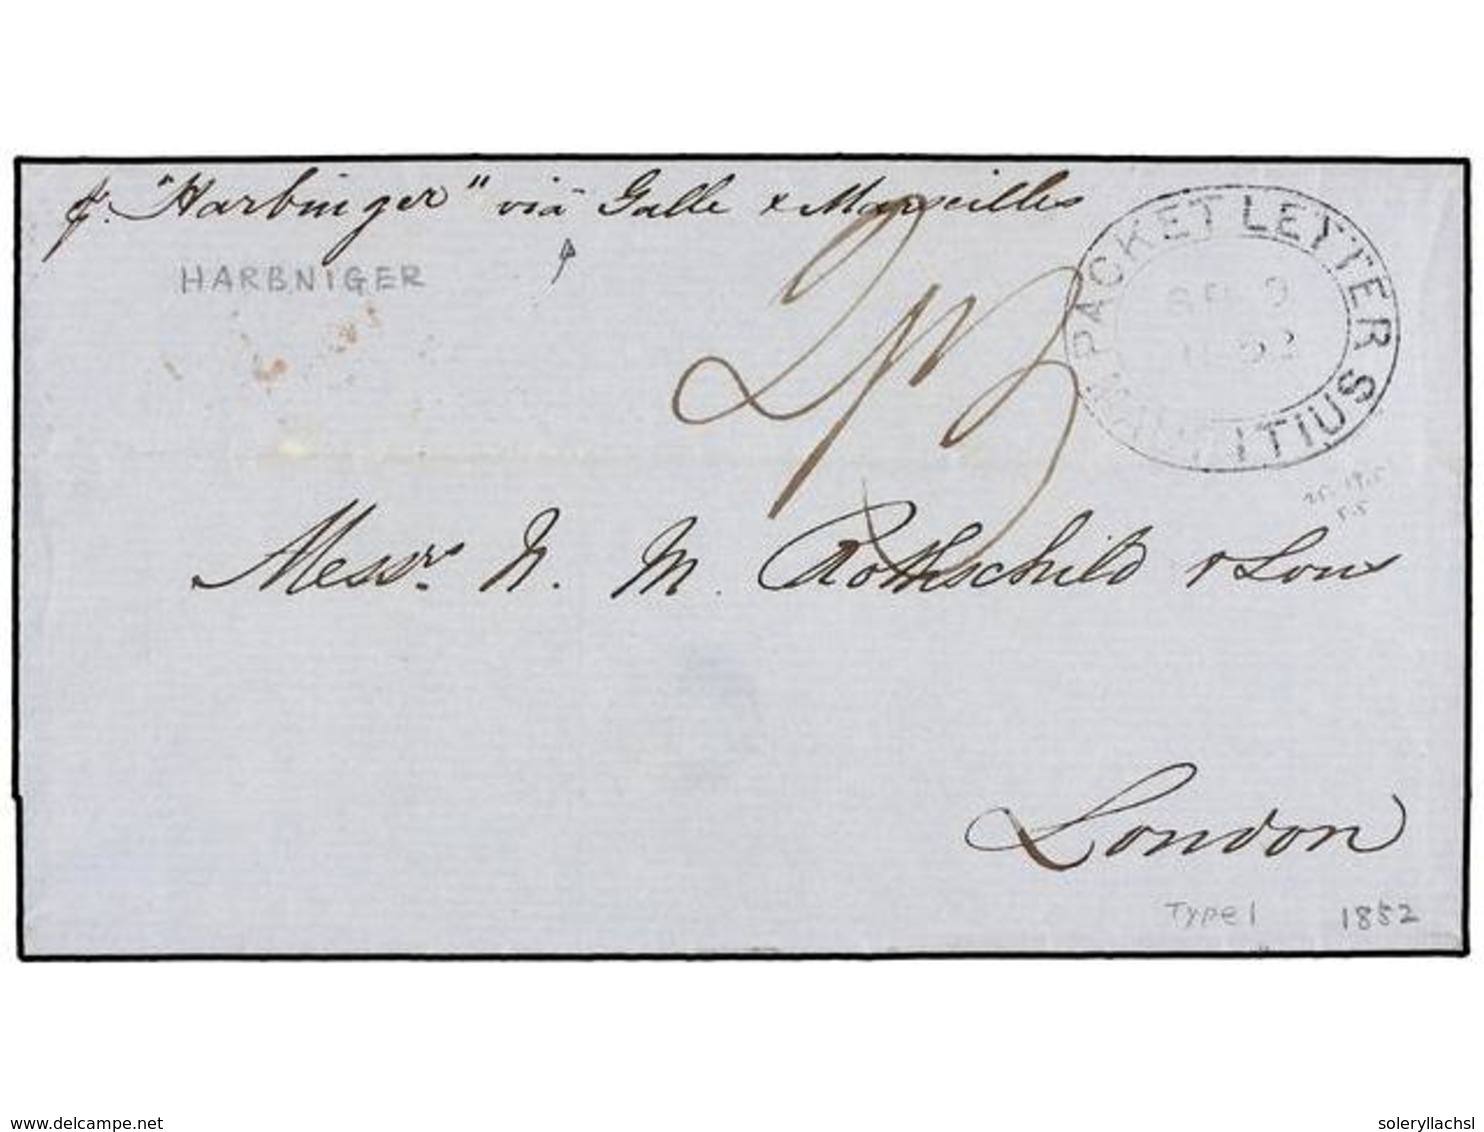 pr. "Harbinger" viâ Galle & Marseilles
HARBNIGER
PACKET LETTER
SE 9
1852
MAURITIUS
2/3
Messrs. N. M. Rothschild & Sons
London
Type 1 1852
www.delcampe.net soleryllachsl